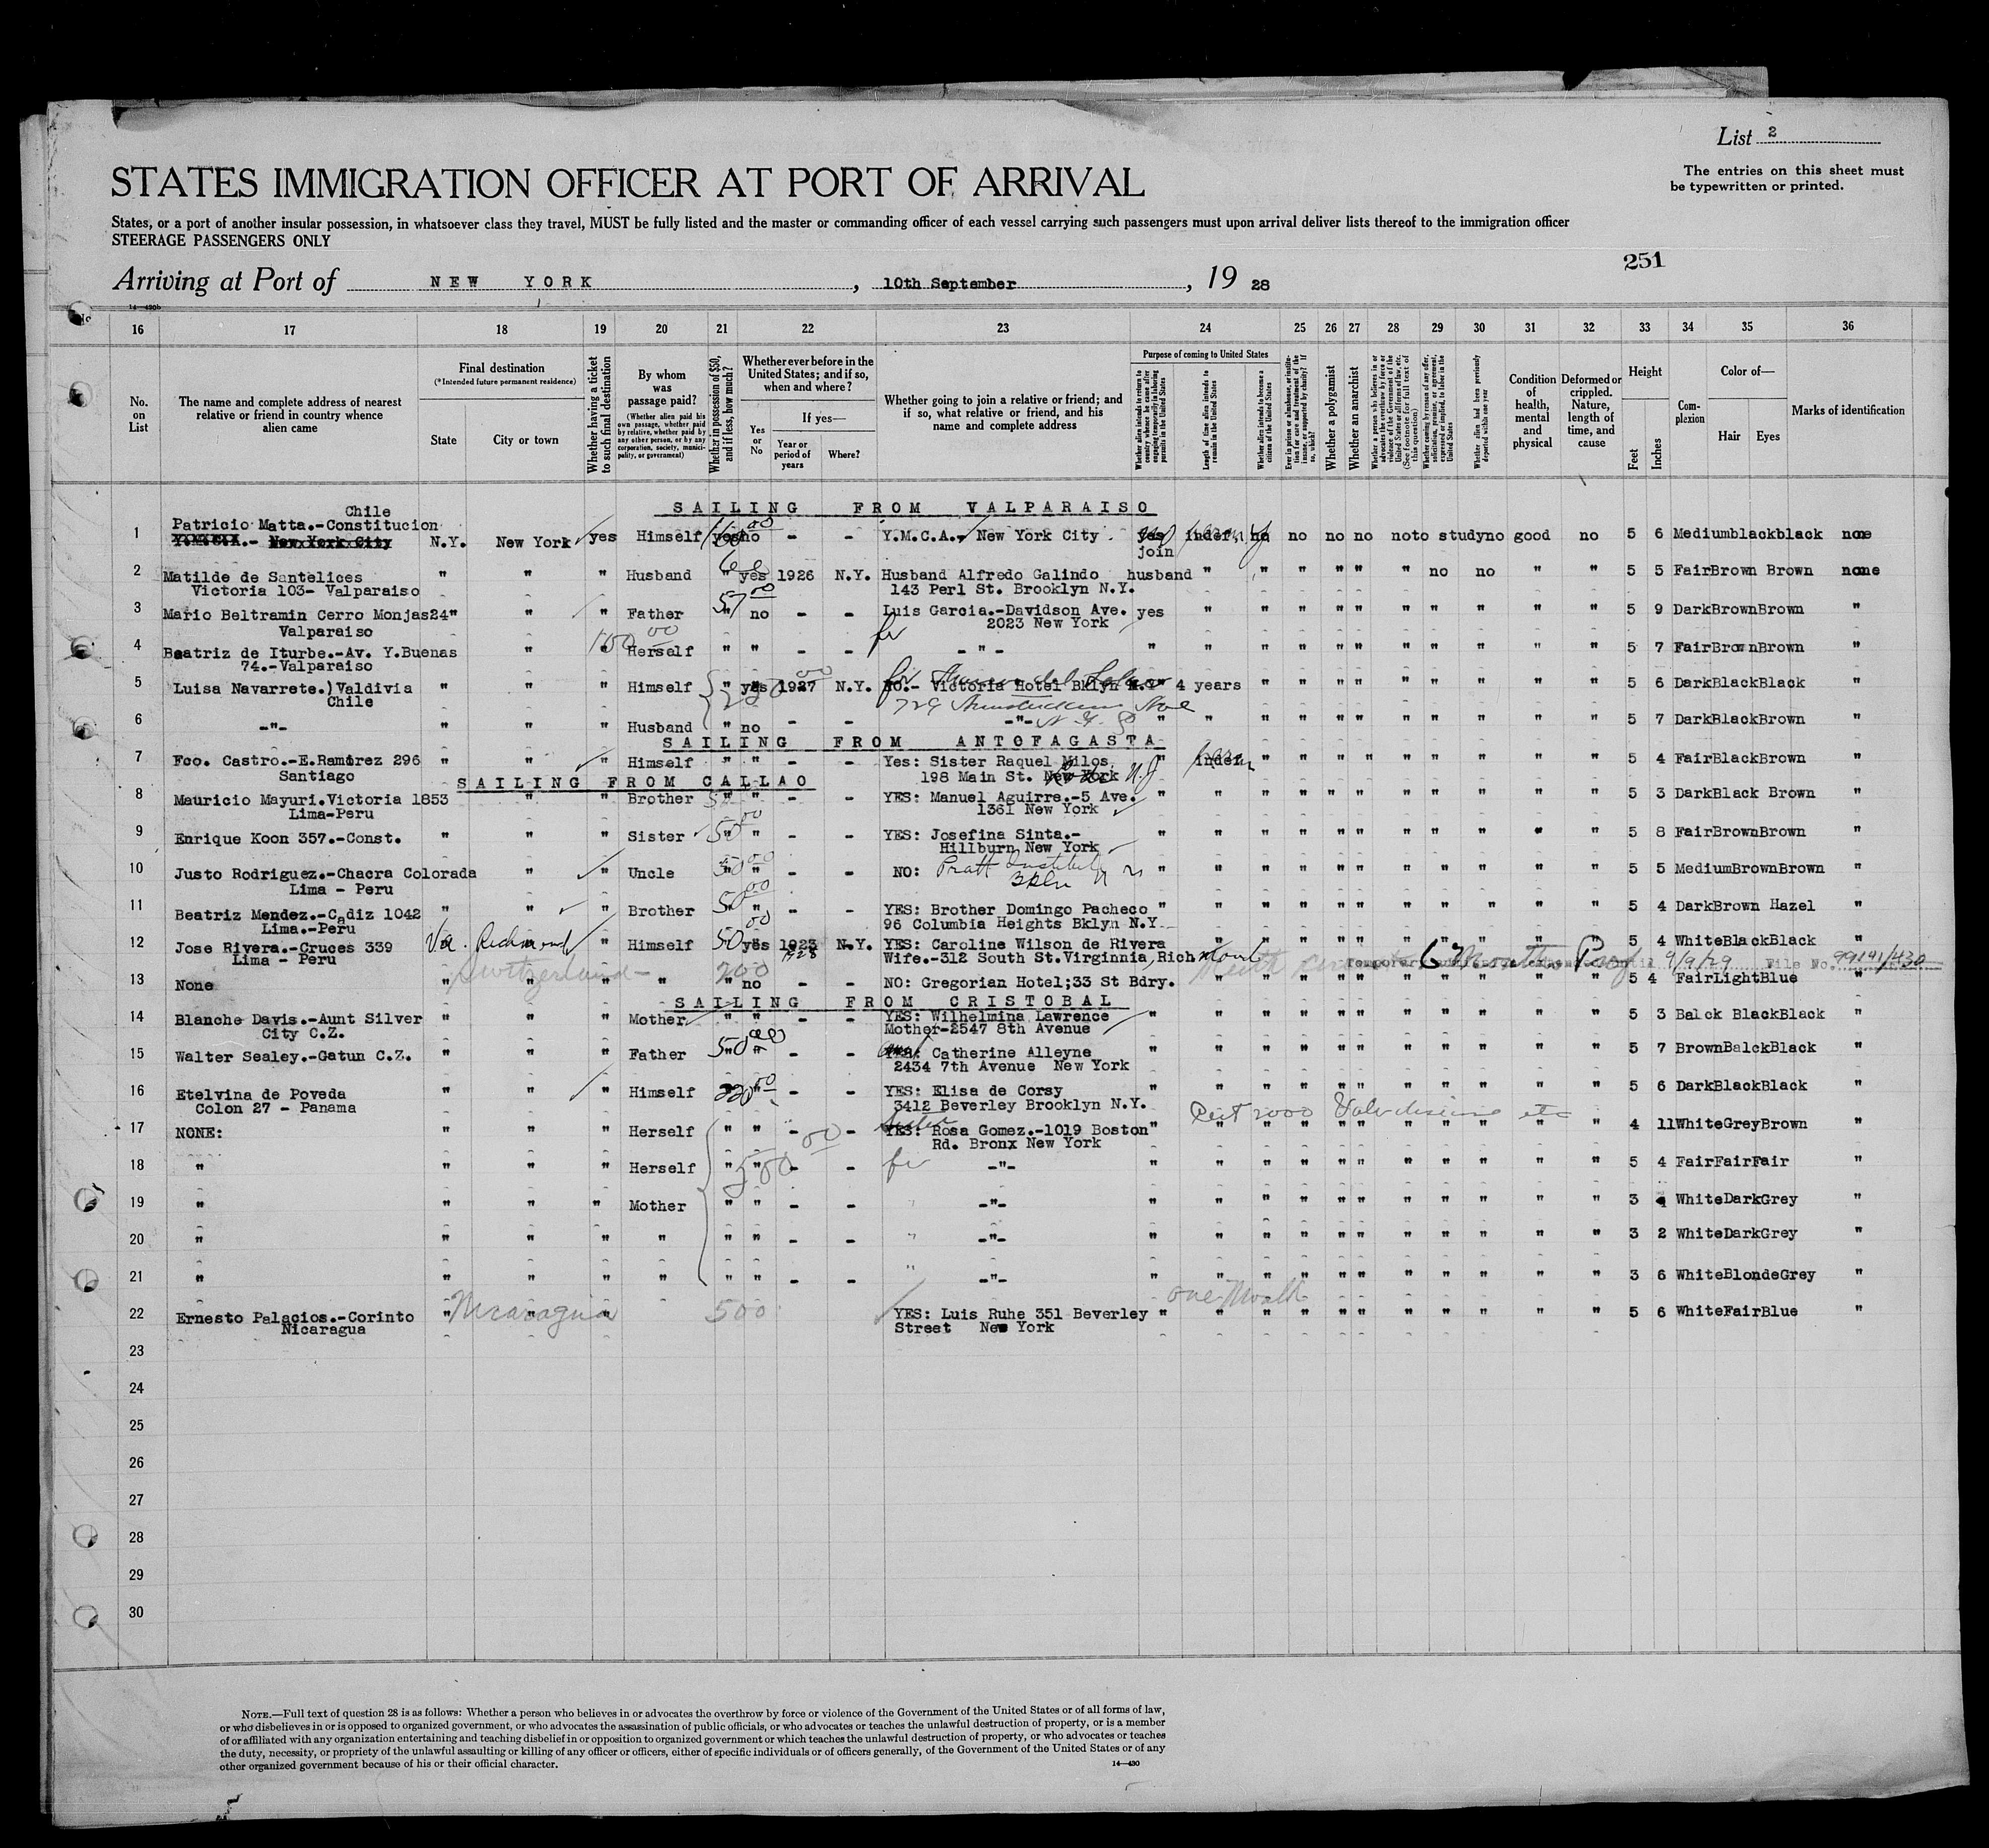 List 2
STATES IMMIGRATION OFFICER AT PORT OF ARRIVAL
The entries on this sheet must
be typewritten or printed.
States, or a port of another insular possession, in whatsoever class they travel, MUST be fully listed and the master or commanding officer of each vessel carrying such passengers must upon arrival deliver lists thereof to the immigration officer
STEERAGE PASSENGERS ONLY
251
Arriving at Port of NEW YORK, 10th September, 19 28
14—430b
16 17 18 19 20 21 22 23 24 25 26 27 28 29 30 31 32 33 34 35 36
No. on List
The name and complete address of nearest relative or friend in country whence alien came
Final destination
(*Intended future permanent residence)
State
City or town
Whether having a ticket to such final destination
By whom was passage paid?
(Whether alien paid his own passage, whether paid by relative, whether paid by any other person, or by any corporation, society, municipality, or government)
Whether in possession of $50, and if less, how much?
Whether ever before in the United States; and if so, when and where?
Yes or No
If yes—
Year or period of years
Where?
Whether going to join a relative or friend; and if so, what relative or friend, and his name and complete address
Purpose of coming to United States
Whether alien intends to return to country whence he came after engaging temporarily in laboring pursuits in the United States
Length of time alien intends to remain in the United States
Whether alien intends to become a citizen of the United States
Ever in prison or almshouse, or institution for care and treatment of the insane, or supported by charity? If so, which?
Whether a polygamist
Whether an anarchist
Whether alien had been previously deported within one year
Condition of health, mental and physical
Deformed or crippled. Nature, length of time, and cause
Height
Feet
Inches
Complexion
Color of—
Hair
Eyes
Marks of identification
SAILING FROM VALPARAISO
Chile
1 Patricio Matta.-Constitucion
Y.M.C.A.- New York City N.Y. New York yes Himself yes no - - Y.M.C.A., New York City yes indef. no no no no no to study no good no 5 6 Medium black black none
join
2 Matilde de Santelices " " " Husband " yes 1926 N.Y. Husband Alfredo Galindo husband " " " " " " no no " " 5 5 Fair Brown Brown none
Victoria 103- Valparaiso 143 Perl St. Brooklyn N.Y.
3 Mario Beltramin Cerro Monjas24 " " " Father 57 00 no - - Luis Garcia.-Davidson Ave. yes " " " " " " " " " " 5 9 Dark Brown Brown "
Valparaiso 2023 New York
4 Beatriz de Iturbe.-Av. Y.Buenas " " 100 00 Herself " " - - -"- " " " " " " " " " " " 5 7 Fair Brown Brown "
74.-Valparaiso
5 Luisa Navarrete.)Valdivia " " " Himself " yes 1927 N.Y. NO.- Victoria Hotel Bklyn N.Y 4 years " " " " " " " " " 5 6 Dark Black Black "
Chile
6 -"- " " " Husband " no - - -"- " " " " " " " " " " " 5 7 Dark Black Brown "
SAILING FROM ANTOFAGASTA
7 Fco. Castro.-E.Ramirez 296 " " " Himself " " - - Yes: Sister Raquel Milos " indef. " " " " " " " " " 5 4 Fair Black Brown "
Santiago 198 Main St. New York N.J
SAILING FROM CALLAO
8 Mauricio Mayuri.Victoria 1853 " " Brother " " - - YES: Manuel Aguirre.-5 Ave. " " " " " " " " " " " 5 3 Dark Black Brown "
Lima-Peru 1361 New York
9 Enrique Koon 357.-Const. " " " Sister 50 00 " - - YES: Josefina Sinta.- " " " " " " " " " " " 5 8 Fair Brown Brown "
Hillburn New York
10 Justo Rodriguez.-Chacra Colorada " " Uncle 50 00 " - - NO: Pratt Institute " " " " " " " " " " " 5 5 Medium Brown Brown "
Lima - Peru
11 Beatriz Mendez.-Cadiz 1042 " " " Brother 50 00 " - - YES: Brother Domingo Pacheco " " " " " " " " " " " 5 4 Dark Brown Hazel "
Lima.-Peru 96 Columbia Heights Bklyn N.Y.
12 Jose Rivera.-Cruces 339 Va. Richmond " Himself 50 00 yes 1923 N.Y. YES: Caroline Wilson de Rivera " " " " " " " " " " " 5 4 White Black Black "
Lima - Peru 1928 Wife.-312 South St.Virginnia,Rich
9/9/29 File No. 99141/430
13 None " Switzerland " " " 200 no - - NO: Gregorian Hotel;33 St Bdry. " " " " " " " " " " " 5 4 Fair Light Blue "
SAILING FROM CRISTOBAL
14 Blanche Davis.-Aunt Silver " " " Mother " " - - YES: Wilhelmina Lawrence " " " " " " " " " " " 5 3 Balck Black Black "
City C.Z. Mother-2547 8th Avenue
15 Walter Sealey.-Gatun C.Z. " " " Father 50 00 " - - YES: Catherine Alleyne " " " " " " " " " " " 5 7 Brown Balck Black "
2434 7th Avenue New York
16 Etelvina de Poveda " " " Himself 220 00 " - - YES: Elisa de Corsy " " " " " " " " " " " 5 6 Dark Black Black "
Colon 27 - Panama 3412 Beverley Brooklyn N.Y.
17 NONE: " " " Herself " " - - YES: Rosa Gomez.-1019 Boston " " " " " " " " " " " 4 11 White Grey Brown "
Sister Rd. Bronx New York
18 " " " " Herself " " 500 00 - - -"- " " " " " " " " " " " 5 4 Fair Fair Fair "
19 " " " " Mother " " - - -"- " " " " " " " " " " " 3 4 White Dark Grey "
20 " " " " " " " - - -"- " " " " " " " " " " " 3 2 White Dark Grey "
21 " " " " " " " - - -"- " " " " " " " " " " " 3 6 White Blonde Grey "
one Month
22 Ernesto Palacios.-Corinto " Nicaragua " " 500 YES: Luis Ruhe 351 Beverley " " " " " " " " " " " 5 6 White Fair Blue "
Nicaragua Street New York
23
24
25
26
27
28
29
30
NOTE.—Full text of question 28 is as follows: Whether a person who believes in or advocates the overthrow by force or violence of the Government of the United States or of all forms of law,
or who disbelieves in or is opposed to organized government, or who advocates the assassination of public officials, or who advocates or teaches the unlawful destruction of property, or is a member
of or affiliated with any organization entertaining and teaching disbelief in or opposition to organized government or which teaches the unlawful destruction of property, or who advocates or teaches
the duty, necessity, or propriety of the unlawful assaulting or killing of any officer or officers, either of specific individuals or of officers generally, of the Government of the United States or of any
other organized government because of his or their official character.
14—430